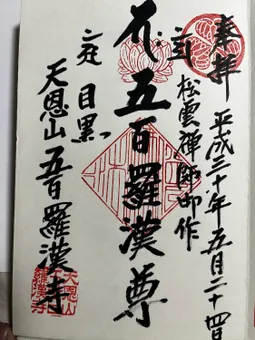 奉拝
平成三十年五月二十四日
松雲禅師御作
五百羅漢尊
目黒
天恩山五百羅漢寺
天恩山
羅漢寺